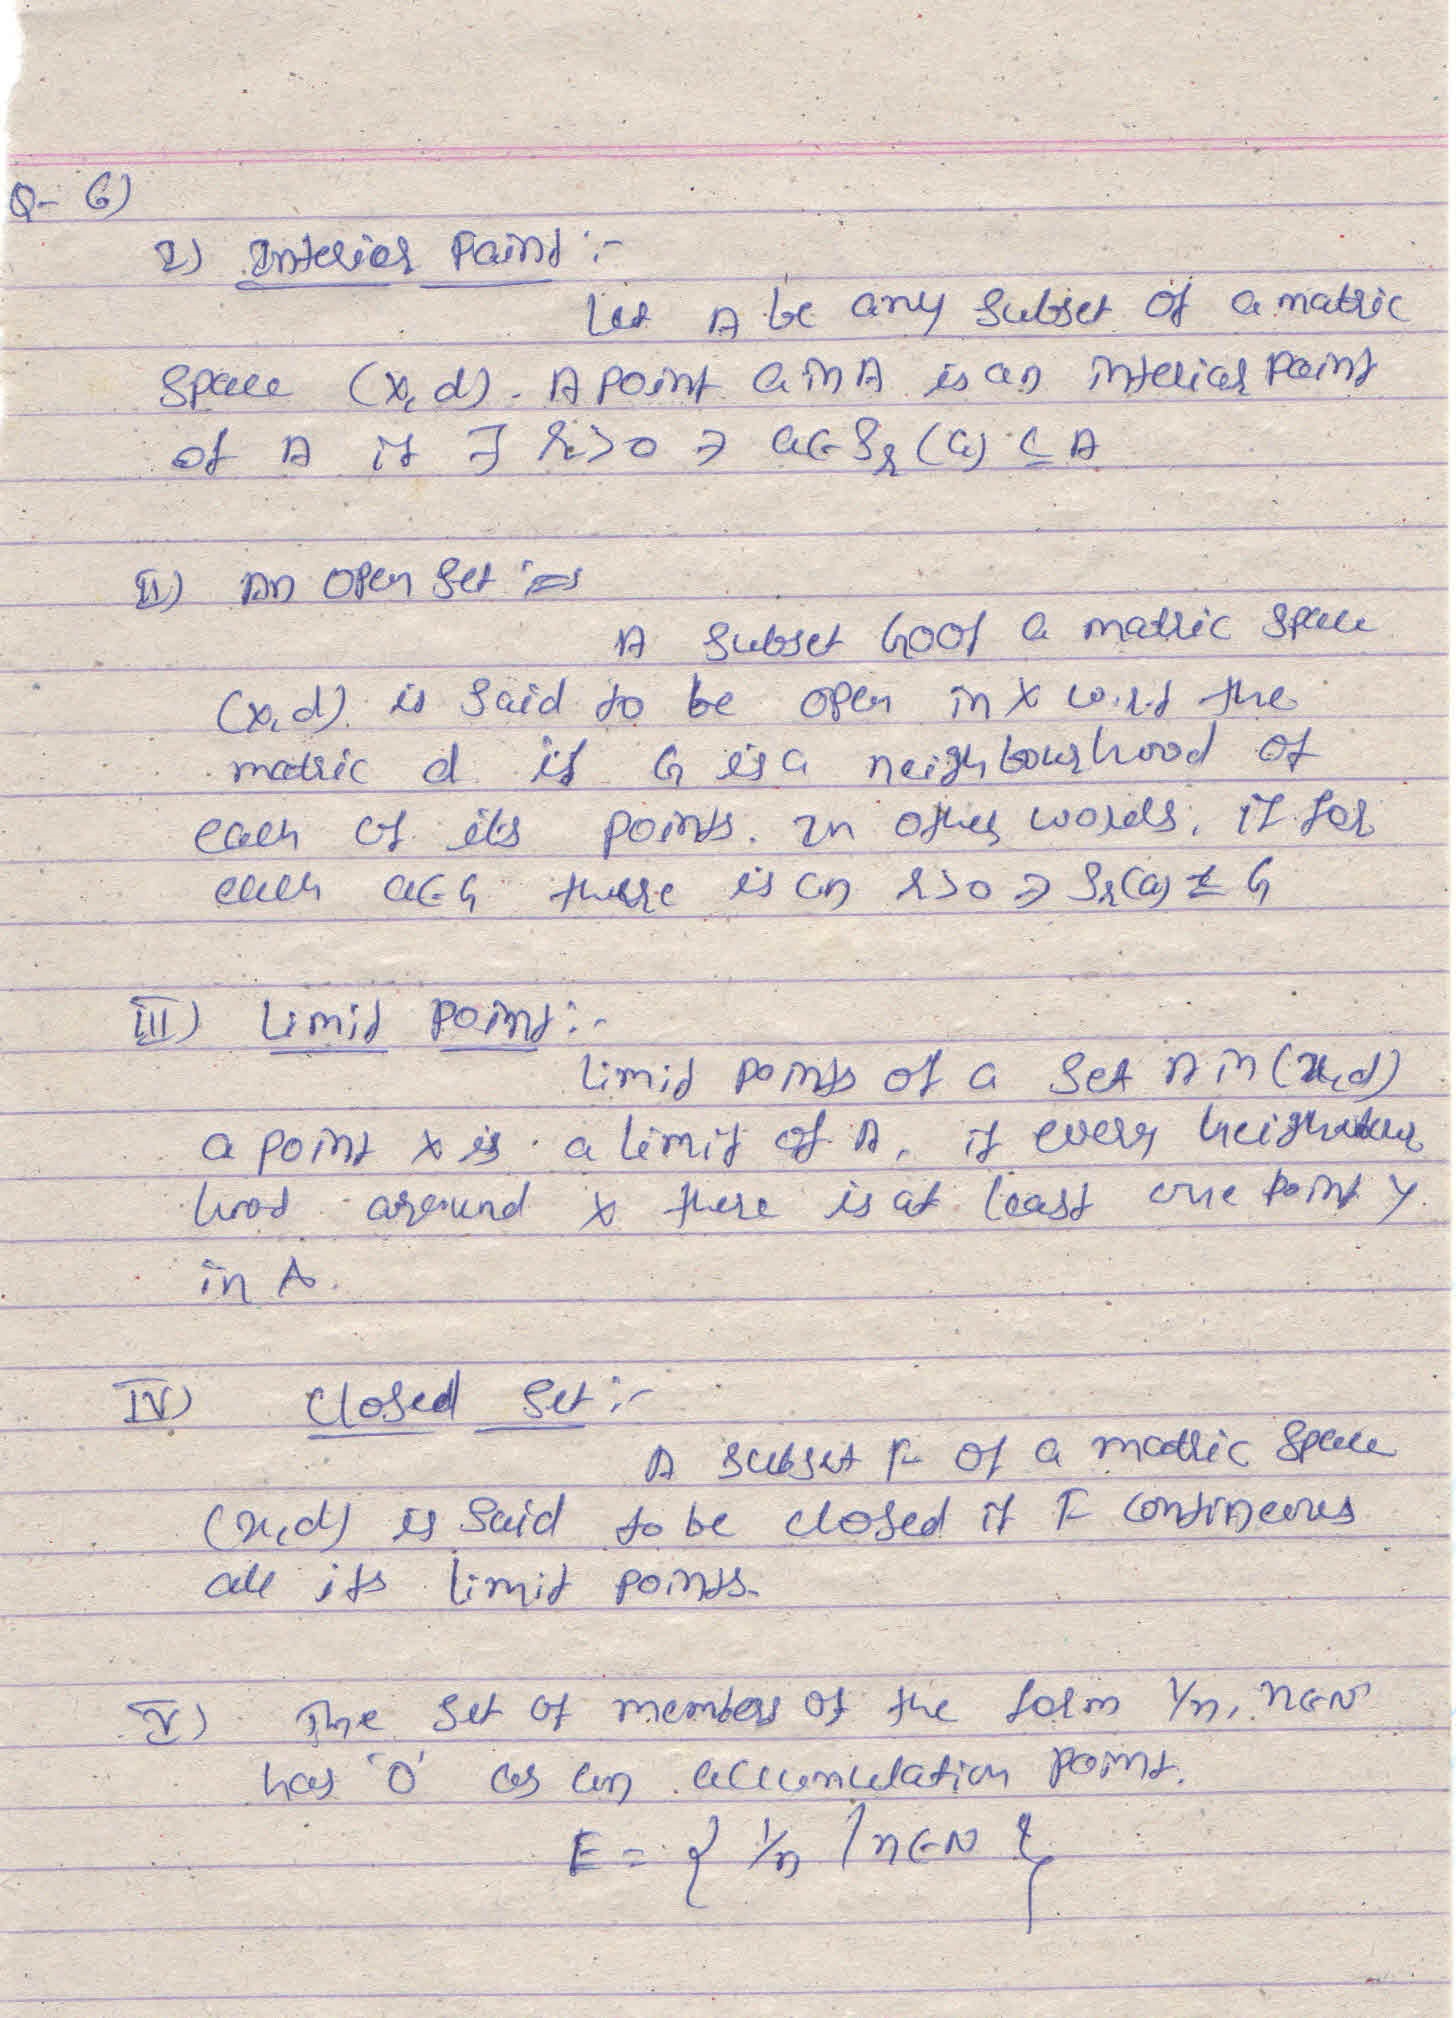 Q- 6)
I) Interior Point :-
Let A be any subset of a matric
space (X, d). A point a in A is an interior point
of A if ∃ r>0 ∋ a∈Sr(a) ⊆ A
II) An open set :-
A subset G of a matric space
(X, d). is said to be open in X w.r.t the
matric d if G is a neighbourhood of
each of its points. In other words, if for
each a∈G there is an r>0 ∋ Sr(a) ⊆ G
III) Limit point :-
Limit points of a set A in (x, d)
a point x is a limit of A, if every neighbour
hood around x there is at least one point y
in A.
IV) Closed set :-
A subset F of a matric space
(x, d) is said to be closed if F
all its limit points.
V) The set of members of the form 1/n, n∈N
has '0' as an accumulation point.
E = { 1/n / n∈N }